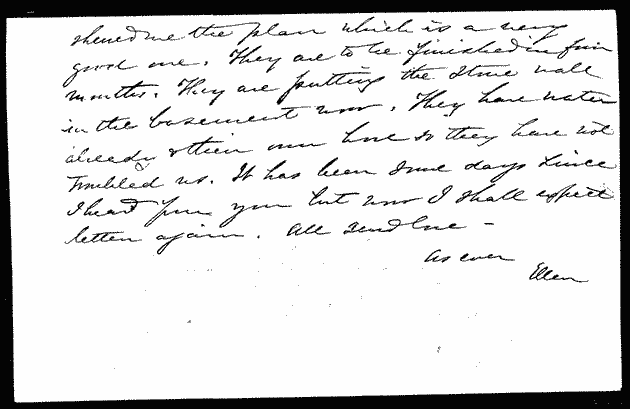 showed me the plan which is a very
good one. They are to be finished in five
months. They are putting the stone wall
in the basement now. They have water
already & their own hose so they have not
troubled us. It has been some days since
I heard from you but now I shall expect
letters again. All send love -
As ever
Ellen